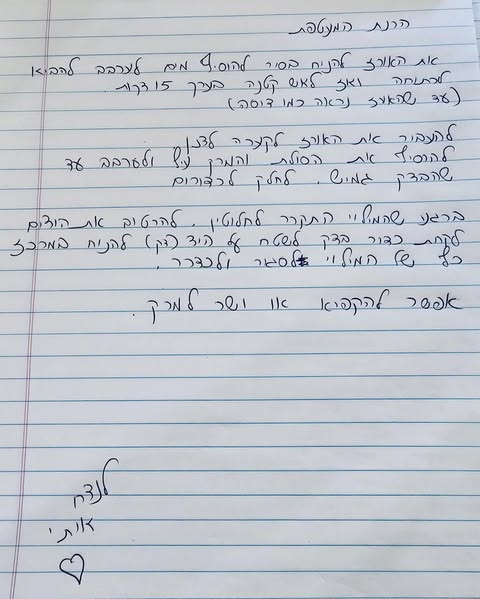 הכנת המעטפת
את האורז להניח בסיר להוסיף מים לערבב להביא
לרתיחה ואז לאש קטנה בערך 15 דקות.
(עד שהאורז נראה כמו דייסה)
להעביר את האורז לקערה לצנן
להוסיף את הסולת והמרק עוף ולערבב עד
שהבצק גמיש. לחלק לכדורים
ברגע שהמילוי התקרר לחלוטין. להרטיב את הידיים
לקחת כדור בצק לשטח על היד (דק) להניח במרכז
כף של המילוי לסגור ולכדרר.
אפשר להקפיא או ישר למרק.
לנצח
איתי